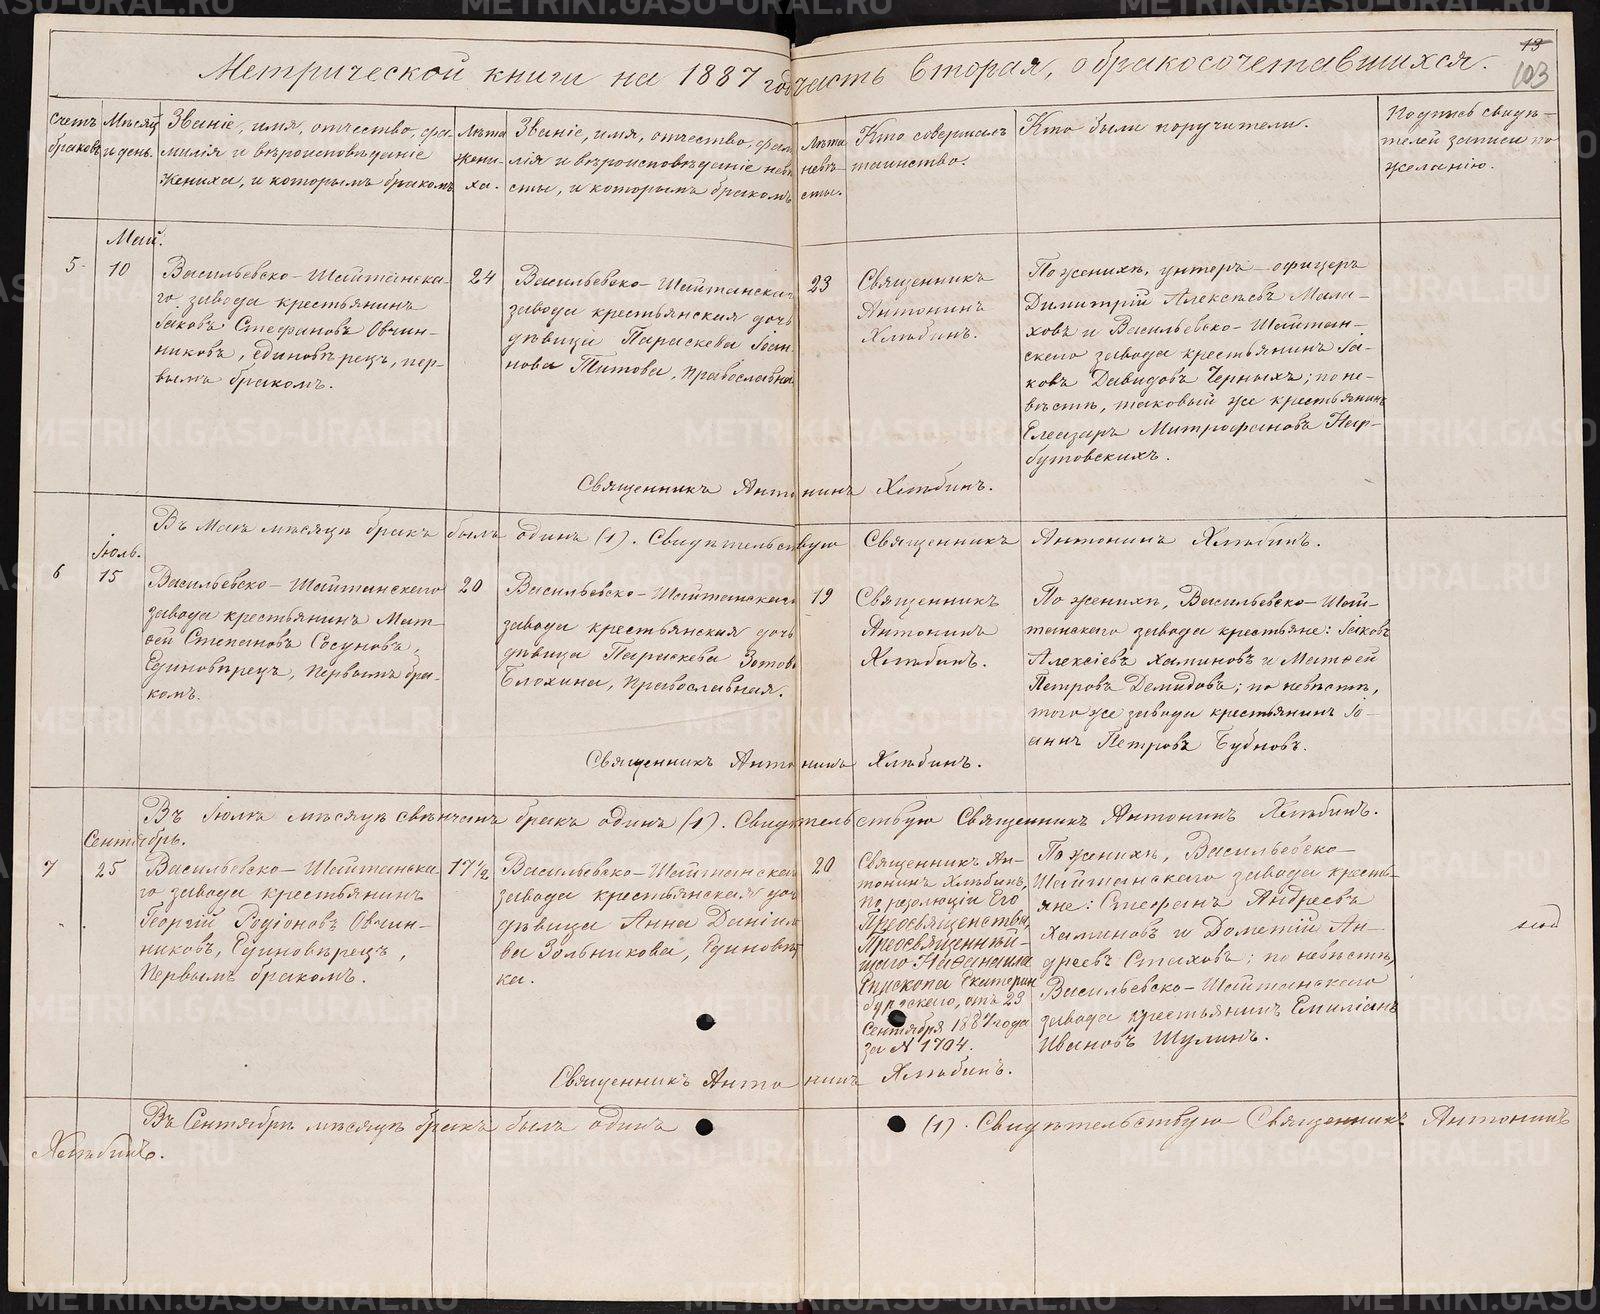 13
103
Метрической книги на 1887 годъ часть вторая, о бракосочетавшихся.
Счетъ браковъ.
Мѣсяцъ и день.
Званіе, имя, отчество, фа-
милія и вѣроисповѣданіе
жениха, и которымъ бракомъ
Лѣта
жени-
ха.
Званіе, имя, отчество, фами
лія и вѣроисповѣданіе невѣ
сты, и которымъ бракомъ
Лѣта
невѣ-
сты.
Кто совершалъ
таинство.
Кто были поручители.
Подпись свидѣ-
телей записи по
желанію.
5
Май.
10
Васильевско-Шайтанска-
го завода крестьянинъ
Іаковъ Стефановъ Овчин-
никовъ, единовѣрецъ, пер-
вымъ бракомъ.
24
Васильевско-Шайтанскаго
завода крестьянская дочь
дѣвица Параскева Іоан-
нова Титова, православная
23
Священникъ
Антонинъ
Хлѣбинъ.
По женихѣ, унтеръ-офицеръ
Димитрій Алексѣевъ Мала-
ховъ и Васильевско-Шайтан-
скаго завода крестьянинъ Іа-
ковъ Давидовъ Черныхъ; по не-
вѣстѣ, таковый же крестьянинъ
Елеазаръ Митрофановъ Нар-
бутовскихъ.
Священникъ Антонинъ Хлѣбинъ.
Въ Маѣ мѣсяцѣ бракъ былъ одинъ (1). Свидѣтельствую Священникъ Антонинъ Хлѣбинъ.
6
Іюль.
15
Васильевско-Шайтанскаго
завода крестьянинъ Мат-
ѳей Степановъ Сосуновъ,
Единовѣрецъ, Первымъ бра-
комъ.
20
Васильевско-Шайтанскаго
завода крестьянская дочь
дѣвица Параскева Зотова
Блохина, православная.
19
Священникъ
Антонинъ
Хлѣбинъ.
По женихѣ, Васильевско-Шай-
танскаго завода крестьяне: Іаковъ
Алексіевъ Хаминовъ и Матѳей
Петровъ Демидовъ; по невѣстѣ,
того же завода крестьянинъ Іо-
аннъ Петровъ Бубновъ.
Священникъ Антонинъ Хлѣбинъ.
Въ Іюлѣ мѣсяцѣ свѣнчанъ бракъ одинъ (1). Свидѣтельствую Священникъ Антонинъ Хлѣбинъ.
7
Сентябрь.
25
Васильевско-Шайтанска
го завода крестьянинъ
Георгій Родіоновъ Овчин-
никовъ, Единовѣрецъ,
Первымъ бракомъ.
17½
Васильевско-Шайтанскаго
завода крестьянская дочь
дѣвица Анна Даніило
ва Зольникова, Единовѣр
ка.
20
Священникъ Ан-
тонинъ Хлѣбинъ,
по резолюціи Его
Преосвященства,
Преосвященнѣй-
шаго Наѳанаила
Епископа Екатерин
бургскаго, отъ 23
Сентября 1887 года
за № 1704.
По женихѣ, Васильевско-
Шайтанскаго завода кресть-
яне: Стефанъ Андреевъ
Хаминовъ и Дометій Ан-
дреевъ Стаховъ; по невѣстѣ,
Васильевско-Шайтанскаго
завода крестьянинъ Емиліанъ
Ивановъ Шулинъ.
Священникъ Антонинъ Хлѣбинъ.
Въ Сентябрѣ мѣсяцѣ бракъ былъ одинъ (1). Свидѣтельствую Священникъ Антонинъ
Хлѣбинъ.
METRIKI.GASO-URAL.RU